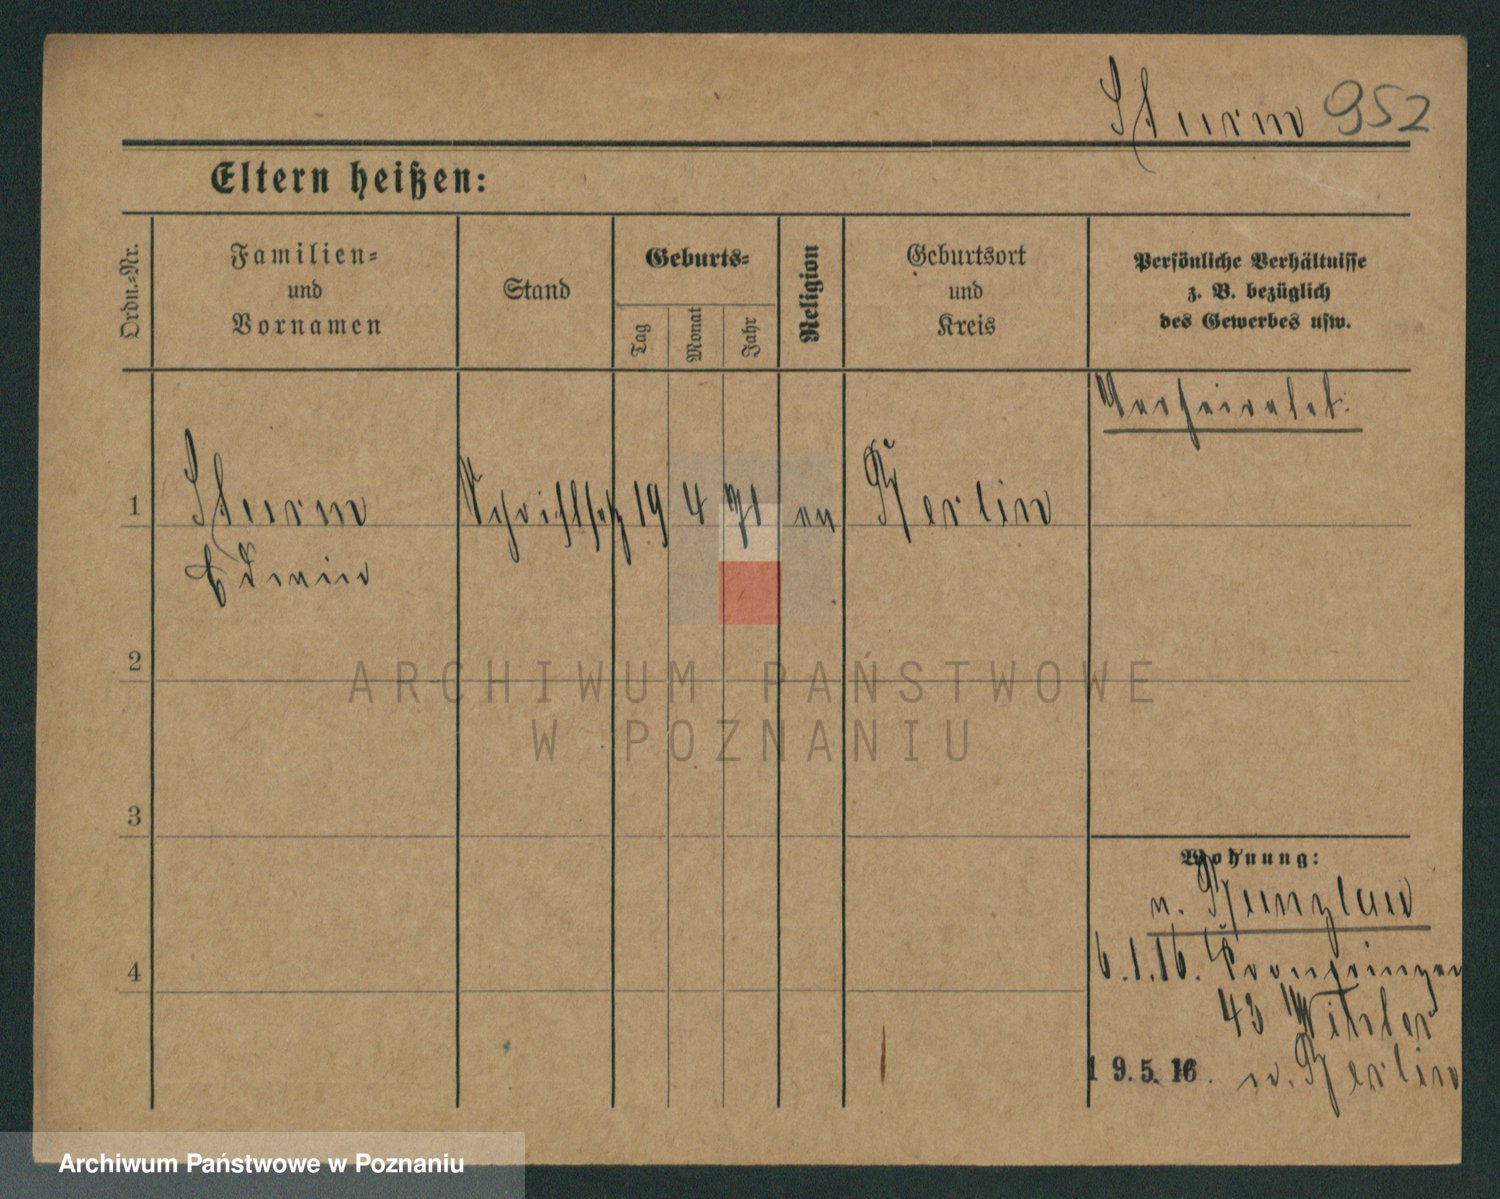 Sturm 952
Eltern heißen:
Ordn.-Nr.
Familien-
und
Vornamen
Stand
Geburts-
Tag
Monat
Jahr
Religion
Geburtsort
und
Kreis
Persönliche Verhältnisse
z. B. bezüglich
des Gewerbes usw.
Verheiratet.
1 Sturm Schriftsetz 19 4 71 ev Berlin
Edwin
2
ARCHIWUM PAŃSTWOWE
W POZNANIU
3
Wohnung:
n. Bunzlau
6.1.16. Kronprinzen
43
19.5.16. n. Berlin
4
Archiwum Państwowe w Poznaniu